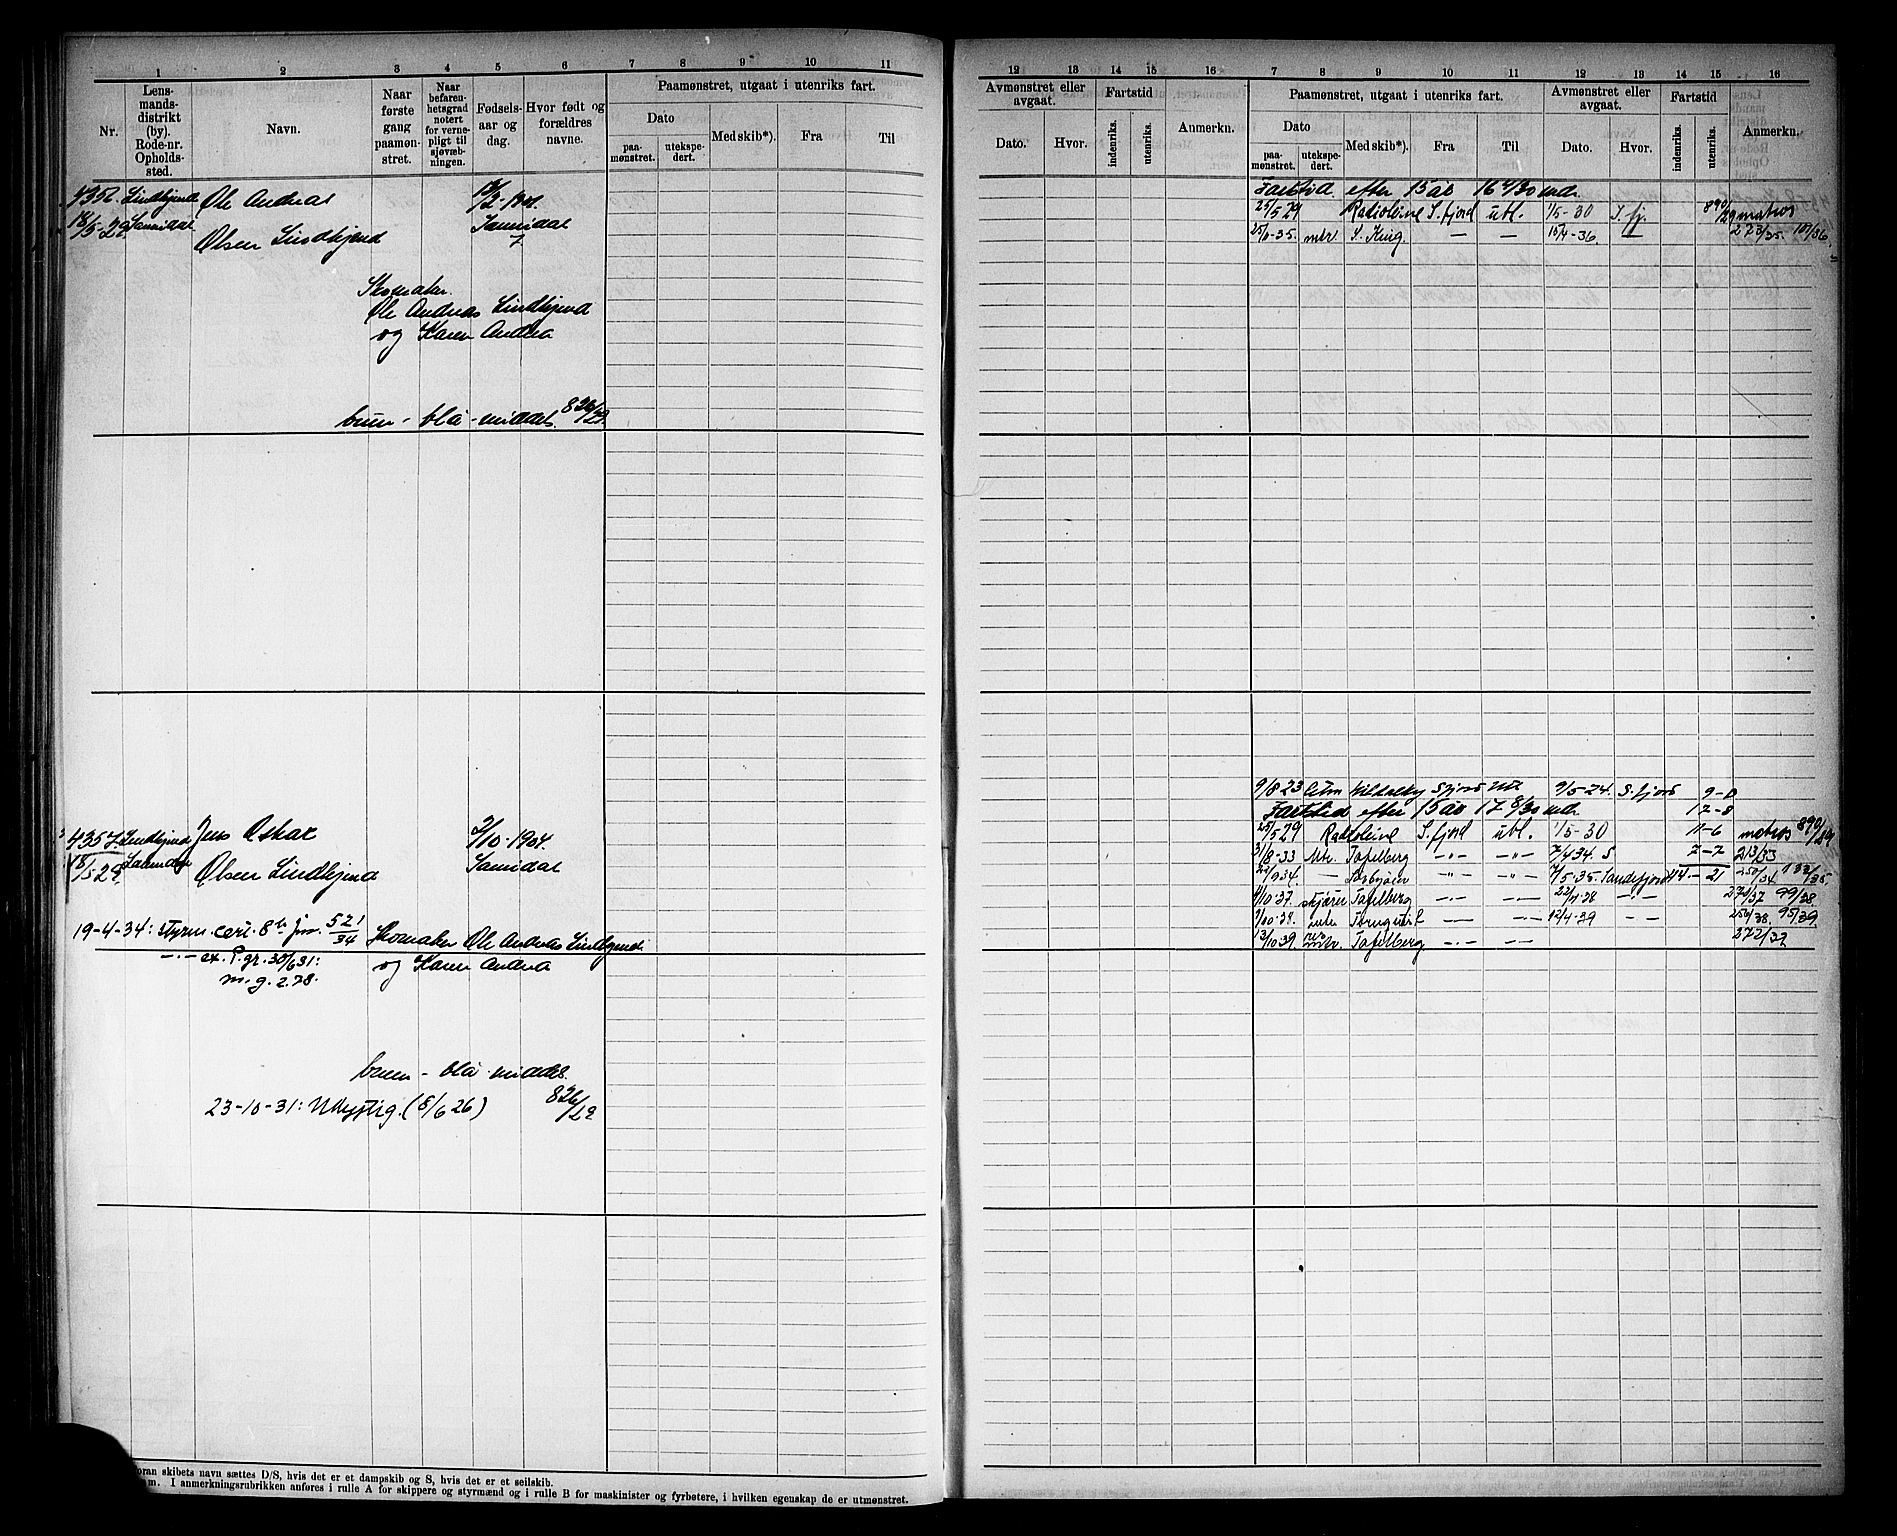 1 2 3 4 5 6 7 8 9 10 11
Nr.
Lens-
mands-
distrikt
(by).
Rode-nr.
Opholds-
sted.
Navn.
Naar
første
gang
paamøn-
stret.
Naar
befaren-
hetsgrad
notert
for verne-
pligt til
sjøvæb-
ningen.
Fødsels-
aar og
dag.
Hvor født og
forældres
navne.
Paamønstret, utgaat i utenriks fart.
Dato
paa-
mønstret.
utekspe-
dert.
Med skib*).
Fra
Til
4356 Lindhjend Ole Andreas
18/5-29 Sannidal Olsen Lindhjend Sannidal
Skomaker
Ole Andreas Lindhjend
og Karen Andrea
brun - blå - middels 826/29
4357 Lindhjend Jens Oskar 2/10-1904
18/5 29 Olsen Lindhjend Sannidal
19-4-34: styrm. cert. 8 521/34 Skomaker Ole Andreas Lindhjend
30/6 31: og Karen Andrea
m. g. 2.78.
brun - blå middels
23-10-31: Udygtig. (8/6 26) 826/29
foran skibets navn sættes D/S, hvis det er et dampskib og S, hvis det er et seilskib.
I anmerkningsrubrikken anføres i rulle A for skippere og styrmænd og i rulle B for maskinister og fyrbøtere, i hvilken egenskap de er utmønstret.
12 13 14 15 16 7 8 9 10 11 12 13 14 15 16
Avmønstret eller
avgaat.
Dato.
Hvor.
Fartstid
indenriks.
utenriks.
Anmerkn.
Paamønstret, utgaat i utenriks fart.
Dato
paa-
mønstret.
utekspe-
dert.
Med skib*).
Fra
Til
Avmønstret eller
avgaat.
Dato.
Hvor.
Fartstid
indenriks.
utenriks.
Anmerkn.
Fartstid efter 15 år 16 4/30 mdr.
25/5 29 Radioleine S. fjord utl. 1/5-30 S. fj. 890/29 matros
25/10-35. mtr. S. King. — — 15/4-36. — 223/35. 107/36
9/8 23 9/5-24. S. fjord 9-0
Fartstid efter 15 år 17 8/30 mdr 17-8
25/5 29 Radioleine S. fjord utl. 1/5-30 11-6 matros 890/29
31/8-33 Mtr. Tafelberg -"- -"- 7/4 34. S 7-7 213/33
— -"- -"- 7/5-35. Sandefjord 250/34
4/10-37. skjærer Tafelberg 22/4-38 274/37 99/38.
12/4-39 256/38. 95/39.
13/10 39. Tafelberg 272/39